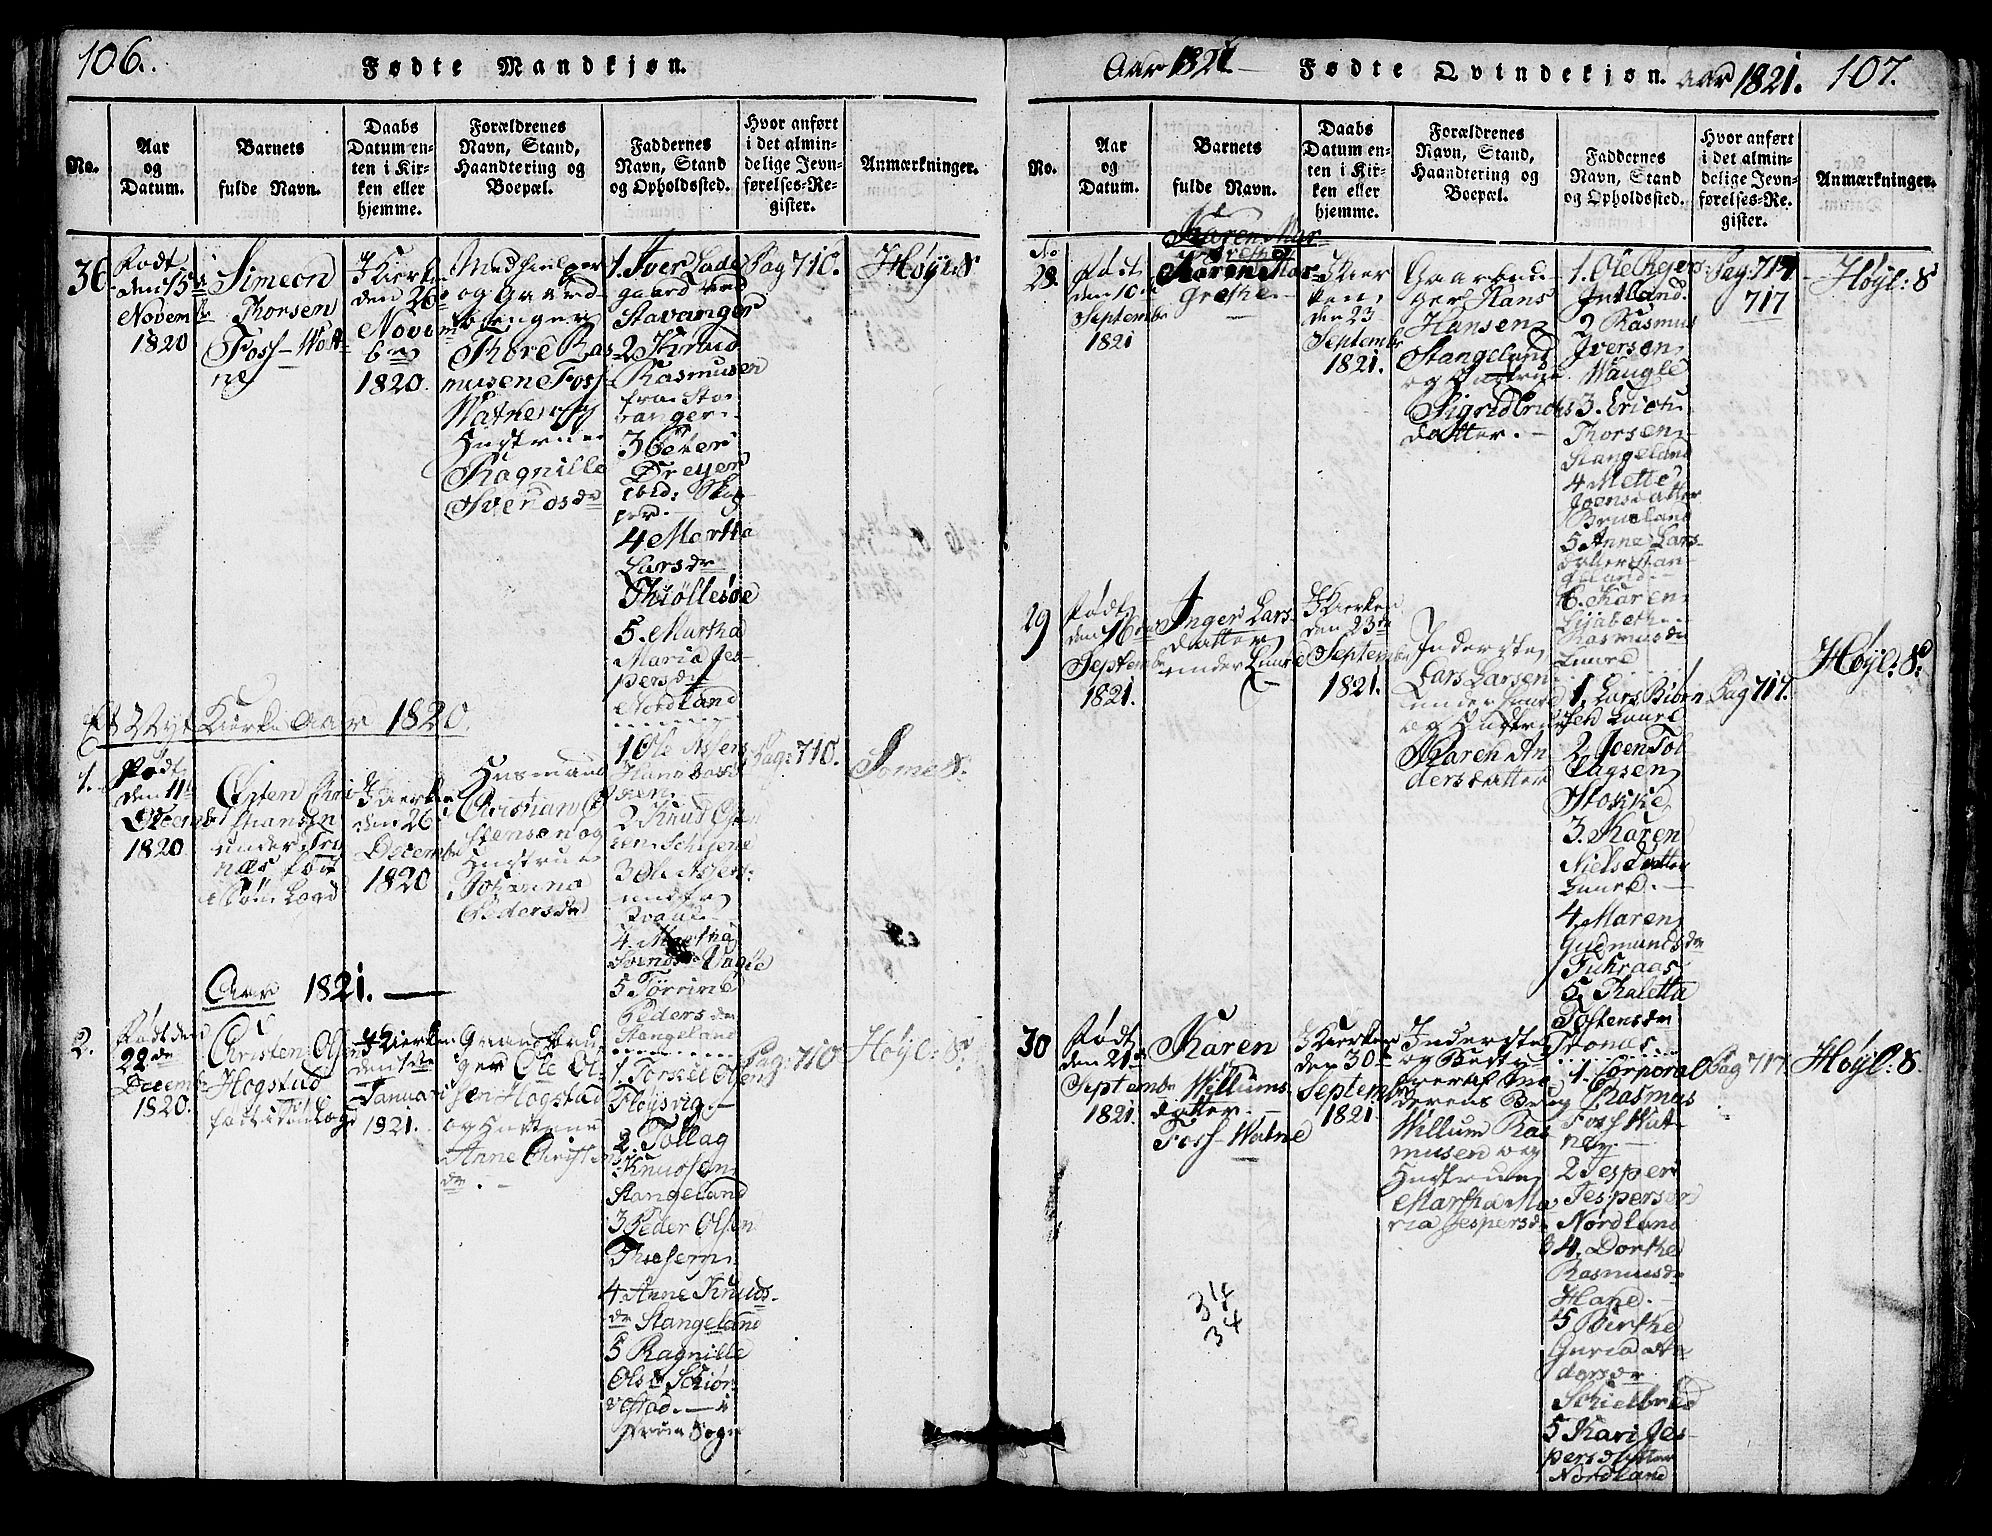 106.
Fødte Mandkjøn.
No.
Aar
og
Datum.
Barnets
fulde Navn.
Daabs
Datum en-
ten i Kir-
ken eller
hjemme.
Forældrenes
Navn, Stand,
Haandtering og
Boepæl.
Faddernes
Navn, Stand
og Opholdssted.
Hvor anført
i det almin-
delige Jevn-
førelses-Re-
gister.
Anmærkninger.
36
Født
den 15de
Novembr
1820
Simeon
Thorsen
Foss-Watt-
ne
I Kierken
den 26de
Novem
br
1820.
Medhielper
og Gaard
bruger
Thore Ras
musen Foss
Watne og
Hustrue
Ragnille
Svends dr
1. Iver Lade
gaard ved
Stavanger
2 Knud
Rasmusen
fra Sta
vanger.
3 Peter
Dreyer
ibid: Skip
per.
4 Martha
Lars dr
Thiøllesøe
5. Martha
Maria Jes-
pers dr
Nordland
Pag 710.
Høyl: S
Kierke Aar 1820.
1.
Født
den 11te
Decembr
1820
Chri
stiansen
under
næs født
I Kierken
den 26
Decembr
1820
Husmand
Christian
stensen og
Hustrue
Johanna
Peders dr
1 Ole Assers
2 Knud
3 Ole Assers:
4. Martha
Svends dr Vagle
5 Tørrine
Peders dr
Stangeland
Pag: 710.
Some S.
Aar 1821.
2.
Født den
22de
Decembr
1820.
Christen Olsen
Hogstad
I Kierken
den 1ste
Januari
1821.
Gaardbru
ger Ole Ol
sen Hogstad
og Hustrue
Anne Christens
dr.
1 Torkel Olsen
Fløysvig.
2. Tollag
Knudsen
Stangeland
3 Peder Olsen
4. Anne Knuds-
dr Stangeland
5 Ragnille
Ols dr Schiør
vestad.
Sogn
Pag: 710
Høyl: S.
Aar 1821
Fødte Qvindekjøn.
Aar 1821.
107.
No.
Aar
og
Datum.
Barnets
fulde Navn.
Daabs
Datum en-
ten i Kir-
ken eller
hjemme.
Forældrenes
Navn, Stand,
Haandtering og
Boepæl.
Faddernes
Navn, Stand
og Opholdssted.
Hvor anført
i det almin-
delige Jevn-
førelses-Re-
gister.
Anmærkninger.
No
28.
Født
den 10de
Septembr
1821
Karen Mar-
grethe
Karen Mar-
grethe.
I Kier
ken
den 23
Septembr
1821.
Gaardbru
ger Hans
Hansen
Stangeland
og Hustrue
Sigrid Erichs
datter.
1. Ole Reiers:
Jutland.
2 Rasmus
Iversen
Waugle
3. Erich
Thorsen
Stangeland
4 Mette
Joensdatter
Brueland
5 Anne Lars-
datter Stan-
geland.
6. Karen
Lisabeth
Rasmus dr
Luure
Pag: 717
717
Høyl: S
29
Født
den 16de
Septembr
1821.
Inger Lars-
datter
under Luure
I Kierken
den 23de
Septembr
1821.
Inderste
Lars Larsen
under Luure
og Hustrue
Karen An
dersdatter
1. Lars Biørn
sen Luure
2 Joen Tol
lagsen
Stokke
3. Karen
Nielsdatter
Luure.
4. Maren
Gudmunds dr
5. Maletta
Tostens dr
Pag 717.
Høyl: S.
30
Født
den 21de
Septembr
1821.
Karen
Willums
datter.
Foss-Watne
I Kierken
den 30te
Septembr
1821
Inderste
og Besty
rer af Mo
derens Brug
Willum Ras
musen og
Hustrue
Martha Ma
ria Jespers dr
1. Corporal
Rasmus
Foss Wat-
ne
2 Jesper
Jespersen
Nordland
3 4. Dorthe
Rasmus dr
Hane.
5 Berthe
Guria An
ders dr
5 Kari Jes-
persdatter
Nordland
Pag 717.
Høyl: S.
34
34